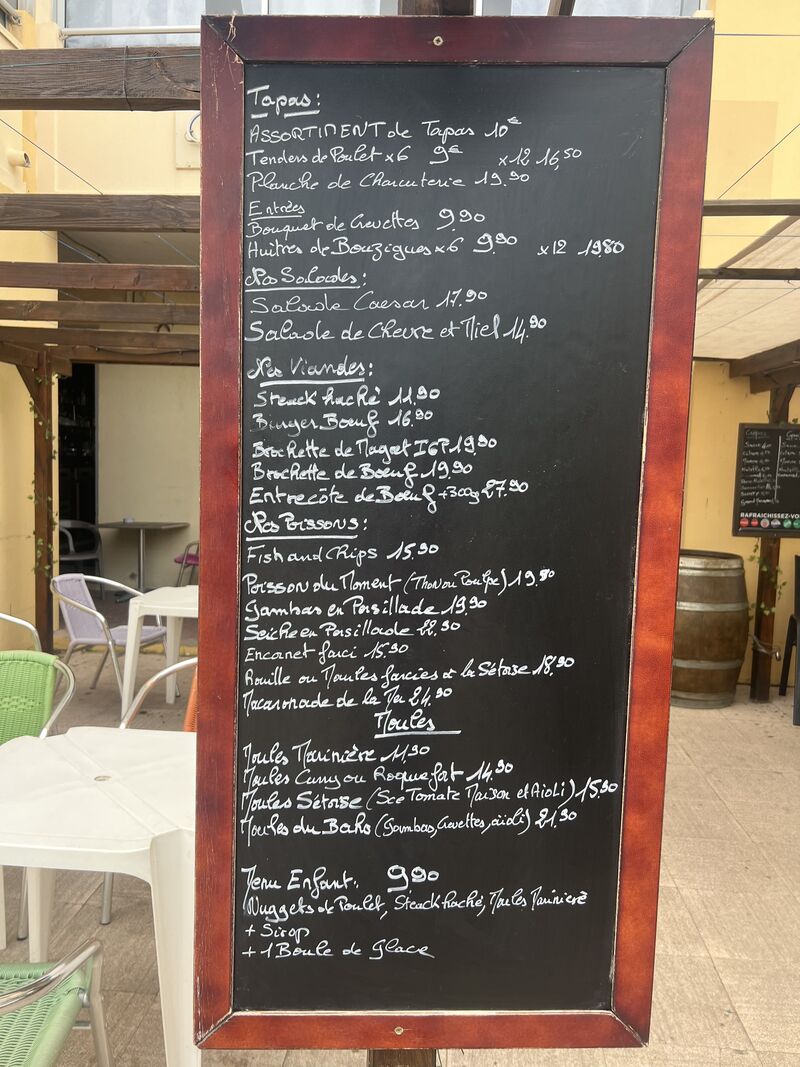 Tapas:
ASSORTIMENT de Tapas 10€
Tenders de Poulet x6 9€ x12 16,50
Planche de Charcuterie 19.90
Entrées
Bouquet de Crevettes 9.90
Huîtres de Bouzigues x6 9.90 x12 19.80
Nos Salades:
Salade Caesar 17.90
Salade de Chevre et Miel 14.90
Nos Viandes:
Steack haché 11.90
Burger Bœuf 16.90
Brochette de Magret IGP 19.90
Brochette de Bœuf 19.90
Entrecôte de Bœuf +300g 27.90
Nos Poissons:
Fish and Chips 15.90
Poisson du Moment (Thon ou Poulpe) 19.90
Gambas en Persillade 19.90
Seiche en Persillade 22.90
Encornet farci 15.90
Rouille ou Moules farcies à la Sétoise 18.90
Macaronade de la Mer 24.90
Moules
Moules Marinière 11.90
Moules Curry ou Roquefort 14.90
Moules Sétoise (Sce Tomate Maison et Aioli) 15.90
Moules du Boho (Gambas, Crevettes, aioli) 21.90
Menu Enfant: 9.90
Nuggets de Poulet, Steack haché, Moules Marinière
+ Sirop
+ 1 Boule de Glace
RAFRAICHISSEZ-VO